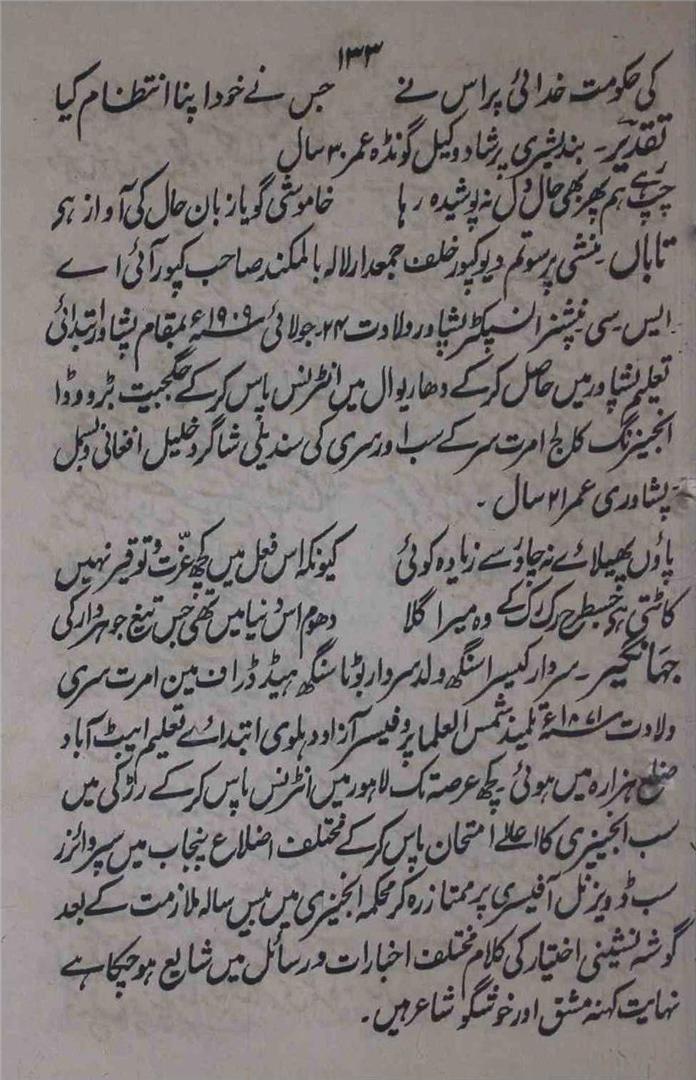 ۱۳۳
کی حکومت خدائی پر اس نے جس نے خود اپنا انتظام کیا
تقدیر۔ بندیشری پرشاد وکیل گونڈہ عمر ۳۰ سال
چپ رہے ہم پھر بھی حال دل نہ پوشیدہ رہا خاموشی گویا زبان حال کی آواز ہی
تاباں۔ منشی پرسوتم دیو کپور خلف جمعدار لالہ بالمکند صاحب کپور آئی اے
ایس سی پنشنر انسپکٹر پشاور ولادت ۲۴ جولائی ۱۹۰۹ء بمقام پشاور ابتدائی
تعلیم پشاور میں حاصل کر کے دھاریوال میں انٹرنس پاس کر کے جگجیت بڑووڈا
انجینرنگ کالج امرت سر کے سب اورسری کی سند پائی شاگرد خلیل افغانی و بسمل
پشاوری عمر ۲۱ سال ۔
پاؤں پھیلائے نہ چادر سے زیادہ کوئی کیونکہ اس فعل میں کچھ عزت و توقیر نہیں
کاٹتی ہے جسطرح رک رک کے وہ میرا گلا دھوم اس دنیا میں تھی جس تیغ جوہردار کی
جہانگیر۔ سردار کیسرا سنگھ ولد سردار بوٹا سنگھ ہیڈ ڈراف مین امرت سری
ولادت ۱۸۷۱ء تلمیذ شمس العلما پروفیسر آزاد دہلوی ابتدائے تعلیم ایبٹ آباد
ضلع ہزارہ میں ہوئی کچھ عرصہ تک لاہور میں انٹرنس پاس کر کے رڑکی میں
سب انجینری کا اعلےٰ امتحان پاس کر کے مختلف اضلاع پنجاب میں سپروائزر
سب ڈویزنل آفیسری پر ممتاز رہ کر محکمہ انجینری میں بیس سالہ ملازمت کے بعد
گوشہ نشینی اختیار کی کلام مختلف اخبارات و رسائل میں شایع ہو چکا ہے
نہایت کہنہ مشق اور خوشگو شاعر ہیں۔